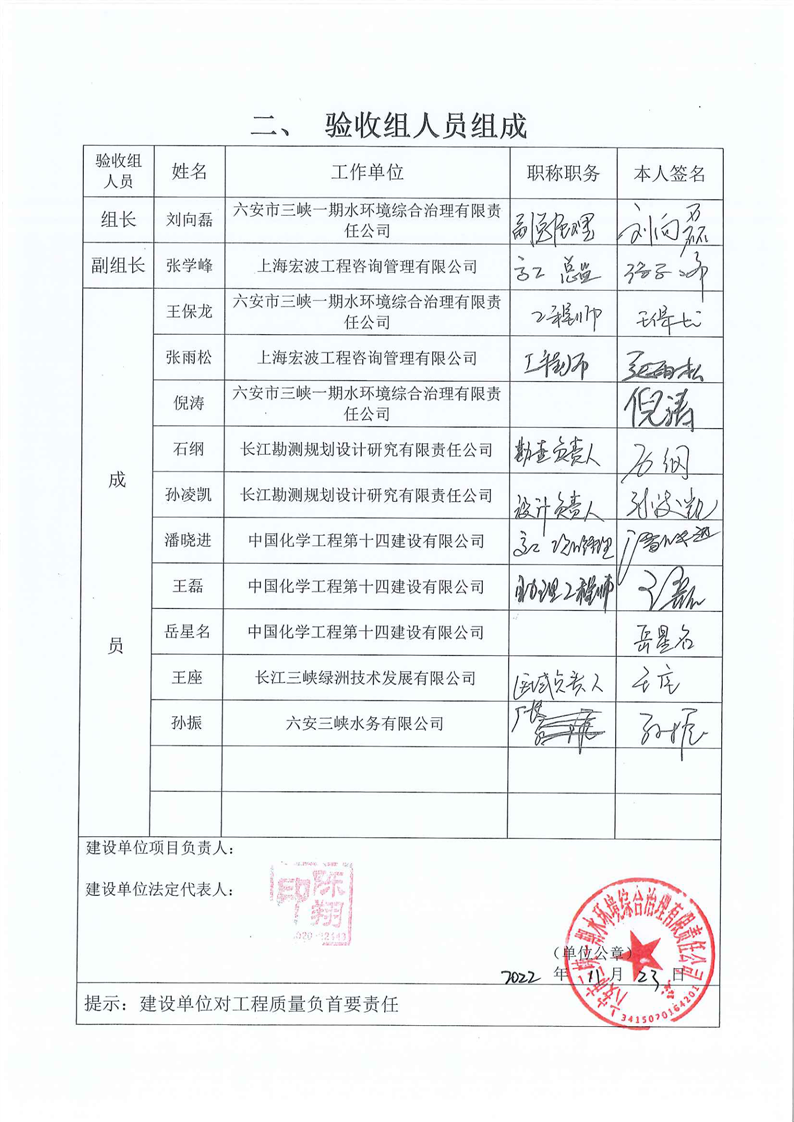 二、 验收组人员组成
验收组
人员
姓名
工作单位
职称职务
本人签名
组长
刘向磊
六安市三峡一期水环境综合治理有限责
任公司
副总经理
刘向磊
副组长
张学峰
上海宏波工程咨询管理有限公司
高工 总监
成
员
王保龙
六安市三峡一期水环境综合治理有限责
任公司
工程师
王保龙
张雨松
上海宏波工程咨询管理有限公司
工程师
张雨松
倪涛
六安市三峡一期水环境综合治理有限责
任公司
倪涛
石纲
长江勘测规划设计研究有限责任公司
勘查负责人
石纲
孙凌凯
长江勘测规划设计研究有限责任公司
设计负责人
孙凌凯
潘晓进
中国化学工程第十四建设有限公司
高工 项目经理
潘晓进
王磊
中国化学工程第十四建设有限公司
助理工程师
王磊
岳星名
中国化学工程第十四建设有限公司
岳星名
王座
长江三峡绿洲技术发展有限公司
区域负责人
王座
孙振
六安三峡水务有限公司
厂长
孙振
建设单位项目负责人：
建设单位法定代表人：
陈翔
印
（单位公章）
2022 年 11 月 23 日
六安市三峡一期水环境综合治理有限责任公司
3415070164201
提示：建设单位对工程质量负首要责任